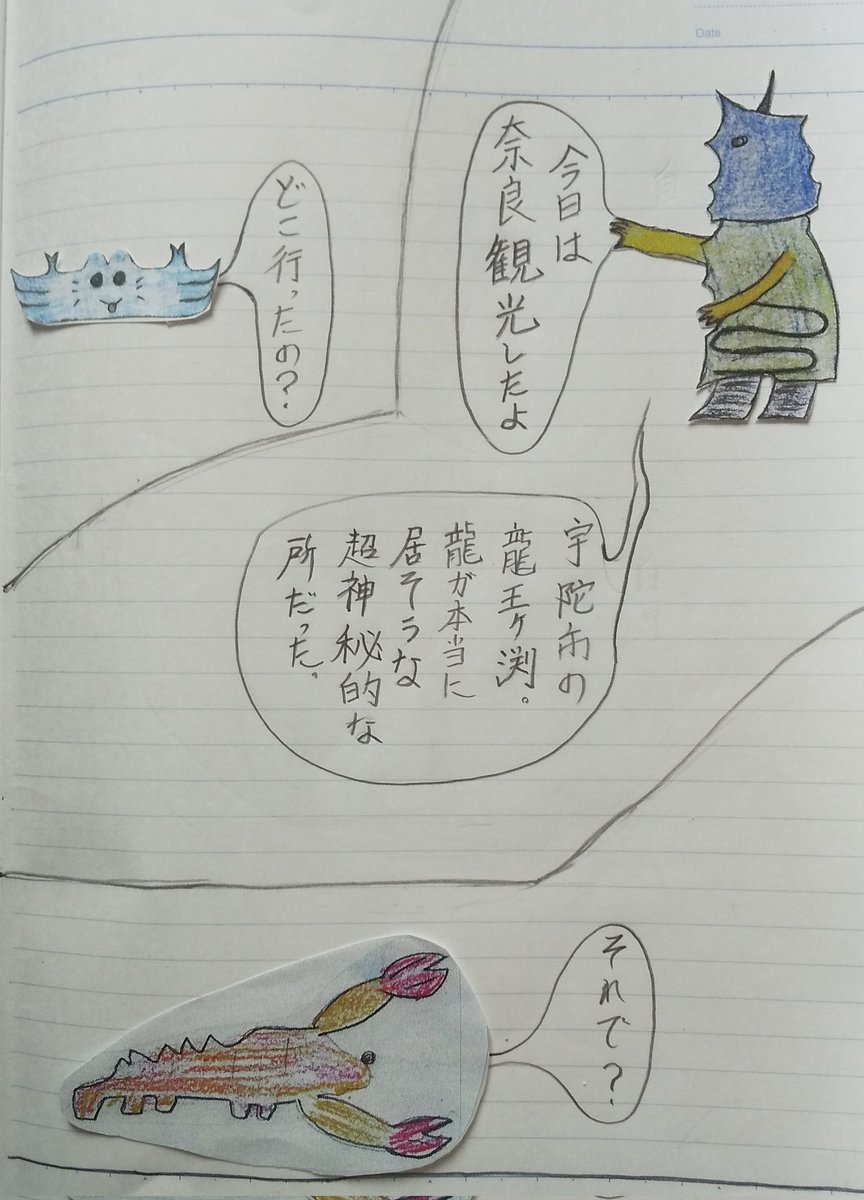 Date
今日は
奈良観光したよ
どこ行ったの?
宇陀市の
龍王ヶ渕。
龍が本当に
居そうな
超神秘的な
所だった。
それで?